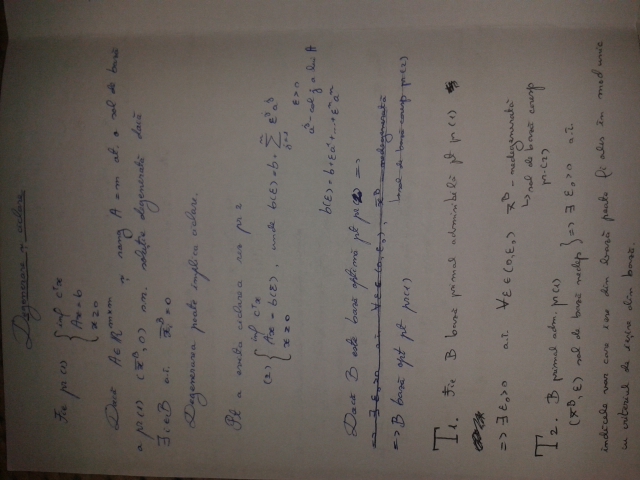 Degenerare și ciclare
Fie pr (1) { inf cᵀx
Ax = b
x ≥ 0
Dacă A ∈ ℝ^{m×n} și rang A = m at. o sol de bază
a pr (1) (x̄ᴮ, 0) s.n. soluție degenerată dacă
∃ i ∈ B a.î. x̄ᵢᴮ = 0
Degenerarea poate implica ciclare.
Pt a evita ciclarea rez pr 2
(2) { inf cᵀx
Ax = b(ε) , unde b(ε) = b + ∑_{j=1}^{n} εʲaʲ
x ≥ 0
ε > 0
aʲ - col j a lui A
b(ε) = b + εa¹ + ... + εⁿaⁿ
Dacă B este bază optimă pt pr(2) =>
=> ∃ ε₀>0 a.î. ∀ ε ∈ (0, ε₀) , x̄ᴮ = nedegenerată
sol de bază coresp pr(2)
=> B bază opt pt pr(1)
T1. Fie B bază primal admisibilă pt pr (1)
=> ∃ ε₀>0 a.î. ∀ ε ∈ (0, ε₀) x̄ᴮ - nedegenerată
↳ sol de bază coresp
pr.(2)
T2. B primal adm. pr(1)
(x̄ᴮ, ε) sol de bază nedeg } => ∃ ε₀>0 a.î.
indicele var care iese din bază poate fi ales în mod unic
cu criteriul de ieșire din bază.